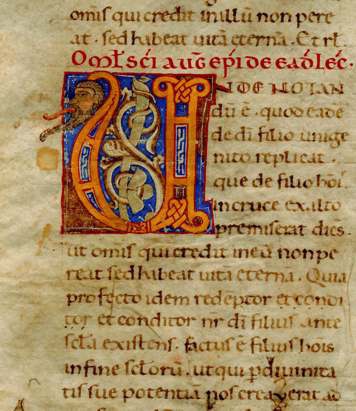 omis qui credit in illū non pere
at · sed habeat vitā eternā · Et rł
Omł sci auḡ epi de eadē lec̄ ·
NDE NOTAN
dū ē · quod eadē
de di filio unige
nito replicat ·
que de filio hoi
in cruce exalto
premiserat dics
ut omis qui credit in eū non pe
reat sed habeat uitā eternā · Quia
profecto idem redēptor et condi
tor et conditor nr di filius ante
scła existens · factus ē filius hois
in fine scłorū · ut qui p divinita
tis sue potentiā nos creaverat ad